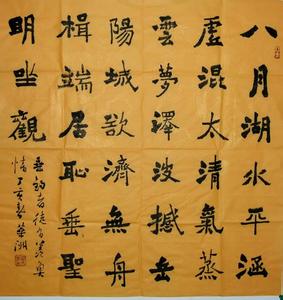 八月湖水平涵
虛混太清氣蒸
雲夢澤波撼岳
陽城欲濟無舟
楫端居恥垂聖
明坐觀
垂釣者徒有羨魚
情 丁亥